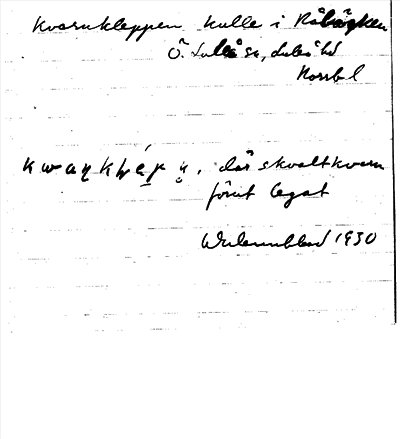 Kvarnkleppen kulle i Råbäcken
Ö. Luleå sn, Luleå hd
Norrb l
där skvaltkvarn
förut legat
1930